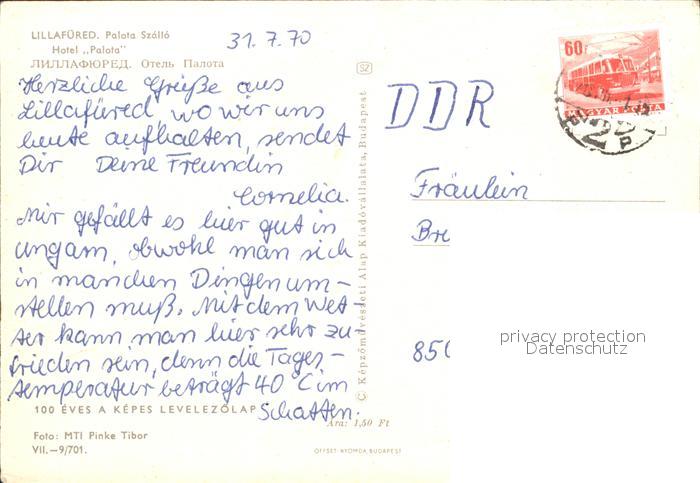 LILLAFÜRED. Palota Szálló
Hotel „Palota"
ЛИЛЛАФЮРЕД. Отель Палота
31.7.70
Herzliche Grüße aus
Lillafüred, wo wir uns
heute aufhalten, sendet
Dir Deine Freundin
Cornelia.
Mir gefällt es hier gut in
Ungarn, obwohl man sich
in manchen Dingen um-
stellen muß. Mit dem Wet-
ter kann man hier sehr zu-
frieden sein, denn die Tages-
temperatur beträgt 40 °C im
Schatten.
100 ÉVES A KÉPES LEVELEZŐLAP
Ára: 1,50 Ft
Foto: MTI Pinke Tibor
VII.—9/701.
OFFSET NYOMDA, BUDAPEST
SZ
© Képzőművészeti Alap Kiadóvállalata, Budapest
60f
MAGYAR POSTA
DDR
Fräulein
Bre
850
privacy protection
Datenschutz